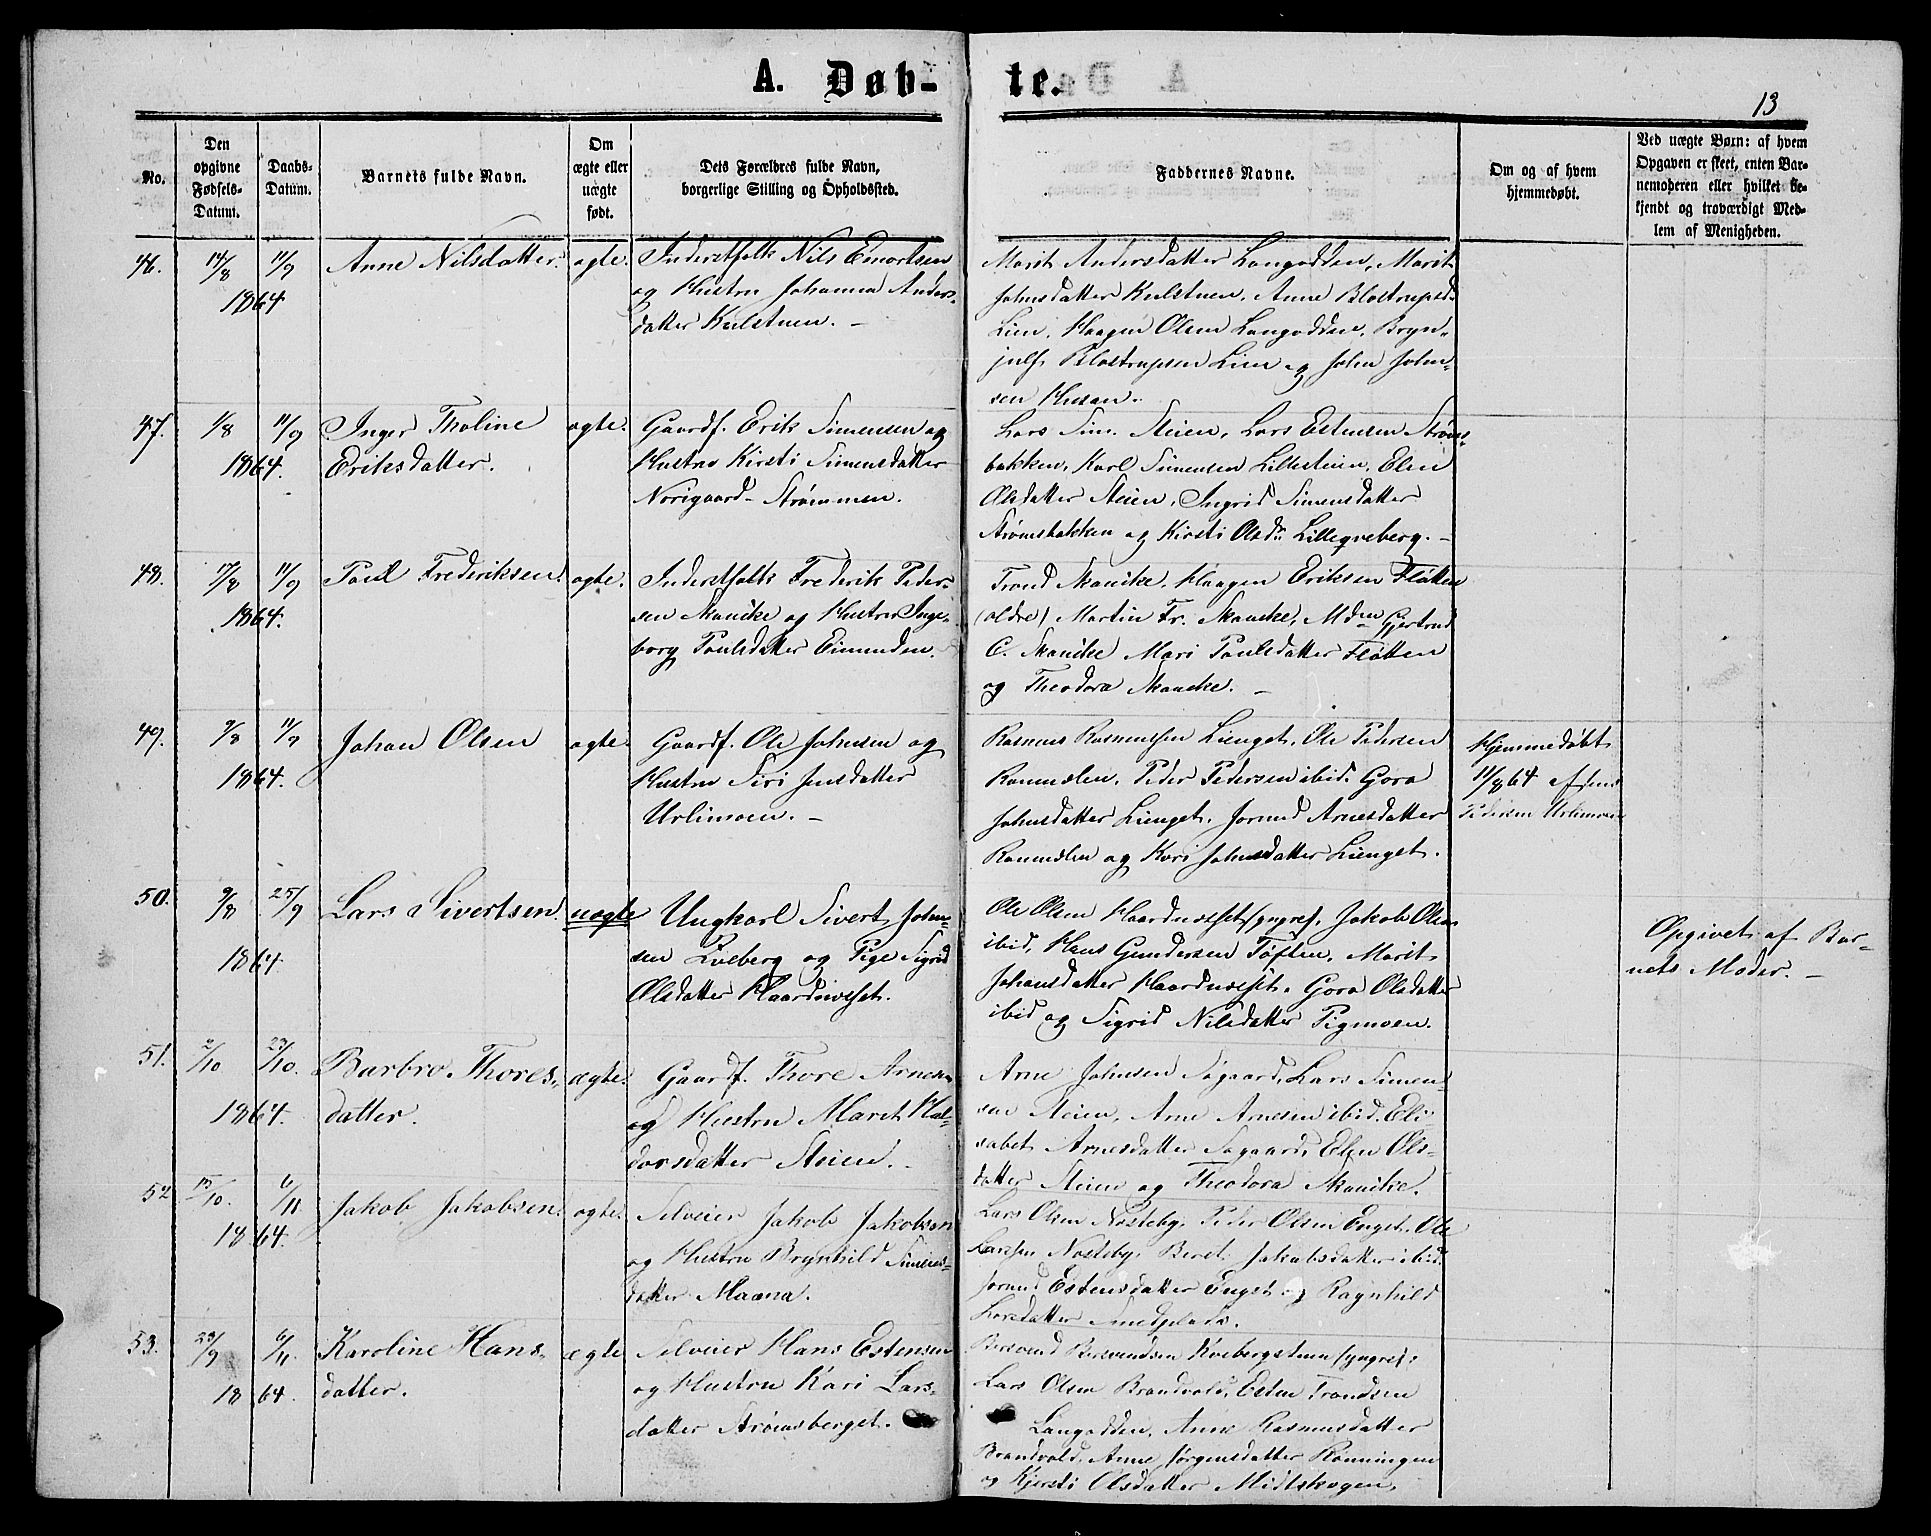 A. Døb- te.
13
No.
Den opgivne Fødsels-Datum.
Daabs-Datum.
Barnets fulde Navn.
Om ægte eller uægte født.
Dets Forældres fulde Navn, borgerlige Stilling og Opholdssted.
Faddernes Navne.
Om og af hvem hjemmedøbt.
Ved uægte Børn: af hvem Opgaven er skeet, enten Barnemoderen eller hvilket bekjendt og troværdigt Medlem af Menigheden.
46.
14/8 11/9
1864.
Anne Nilsdatter.
ægte.
Inderstfolk Nils
og Hustru Johanna Anders-
datter
Marit Andersdatter Langodden, Marit
Johnsdatter Anne
Lien, Haagen Olsen Langodden, Bryn-
julf Lien og John John-
sen
47.
1/8 11/9
1864.
Inger Tholine
Eriksdatter.
ægte.
Gaardf. Erik Simensen og
Hustru Kirsti Simensdatter
Norigaard-Strømmen.
Lars Sim. Steien, Lars Estensen Strøms-
bakken, Karl Simensen Lillesteien, Elen
Olsdatter Steien, Ingrid Simensdatter
Strømsbakken og Kirsti Olsdtr. Lillegreberg.
48.
17/8 11/9
1864.
Paul Frederiksen.
ægte.
Inderstfolk Frederik Peder-
sen Skancke og Hustru Inge-
borg Paulsdatter Eimunden.
Trond Skancke, Haagen Eriksen Fløtten
(ældre) Martin Fr. Skancke, Mden Gjertrud
C. Skancke Mari Paulsdatter Fløtten
og Theodora Skancke.
49.
9/8 11/9
1864.
Johan Olsen
ægte.
Gaardf. Ole Johnsen og
Hustru Siri Jensdatter
Urlimoen.
Rasmus Rasmussen Lienget, Ole Pedersen
Peder Pedersen ibid. Gora
Johnsdatter Lienget, Jorund Arnesdatter
og Kari Johnsdatter Lienget.
Hjemmedøbt
11/8 64 af Jens
Pedersen Urlimoen
50.
9/8 25/9
1864.
Lars Sivertsen.
uægte
Ungkarl Sivert John-
sen Kveberg og Pige Sigrid
Olsdatter Haardnesset.
Ole Olsen Haardnesset (yngre), Jakob Olsen
ibid, Hans Gundersen Tøften, Marit
Johansdatter Haardnesset, Gora Olsdatter
ibid og Sigrid Nilsdatter Pigmoen.
Opgivet af Bar-
nets Moder.
51.
2/10 23/10.
1864.
Barbro Thores-
datter.
ægte.
Gaardf. Thore Arnesen
og Hustru Maret Hal-
dorsdatter Steien.
Arne Johnsen Søgaard, Lars Simen-
sen Steien, Arne Arnesen ibid. Eli-
sabet Arnesdatter Søgaard, Elen Ols-
datter Steien og Theodora Skancke.
52
15/10. 6/11
1864.
Jakob Jakobsen.
ægte.
Selveier Jakob Jakobsen
og Hustru Brynhild Simens-
datter Maana.
Lars Olsen Nesteby, Peder Olsen Enget, Ole
Larssen Nesteby, Beret Jakobsdatter ibid.
Jorund Estensdatter Enget og Ragnhild
Larsdatter Smedplads.
53.
23/9 6/11
1864.
Karoline Hans-
datter.
ægte
Selveier Hans Estensen
og Hustru Kari Lars-
datter Strømsberget.
Bersvend Bersvendsen Kvebergstuen (yngre),
Lars Olsen Brandvold, Esten Trondsen
Langodden, Anne Rasmusdatter
Brandvold, Anne Jørgensdatter Rønningen
og Kjersti Olsdatter Midtskogen.